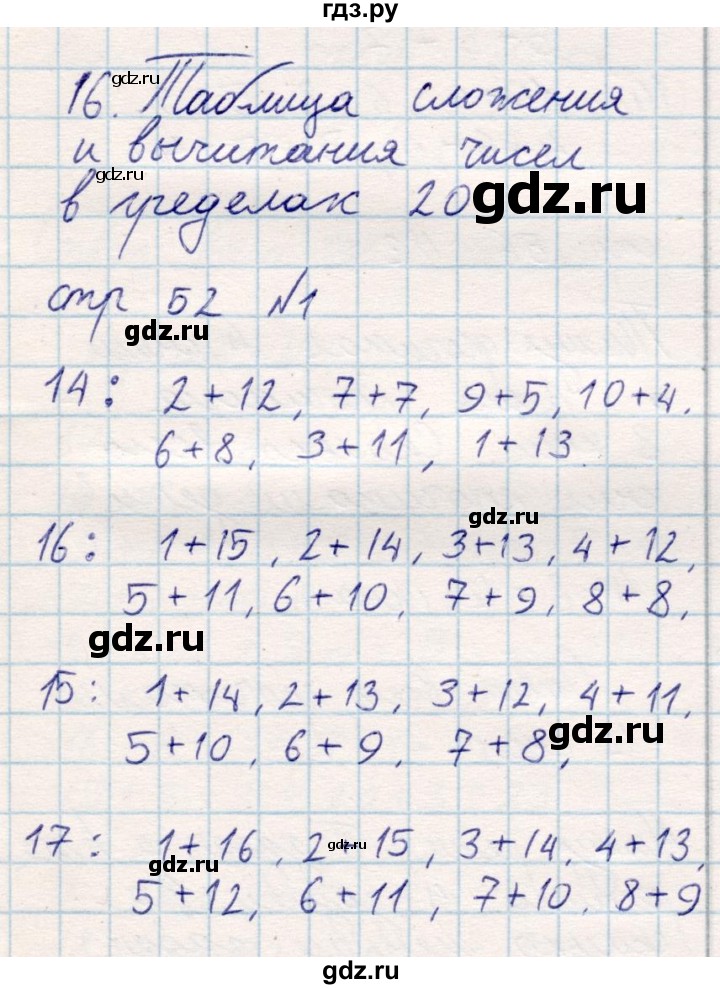 гдз.ру
16. Таблица сложения
gdz.ru
и вычитания чисел
gdz.ru
в пределах 20
gdz.ru
стр 52 №1
gdz.ru
14: 2+12, 7+7, 9+5, 10+4.
6+8, 3+11, 1+13
gdz.ru
16: 1+15, 2+14, 3+13, 4+12,
5+11, 6+10, 7+9, 8+8,
gdz.ru
15: 1+14, 2+13, 3+12, 4+11,
gdz.ru
5+10, 6+9, 7+8,
17: 1+16, 2+15, 3+14, 4+13,
gdz.ru
gdz.ru
5+12, 6+11, 7+10, 8+9
gdz.ru